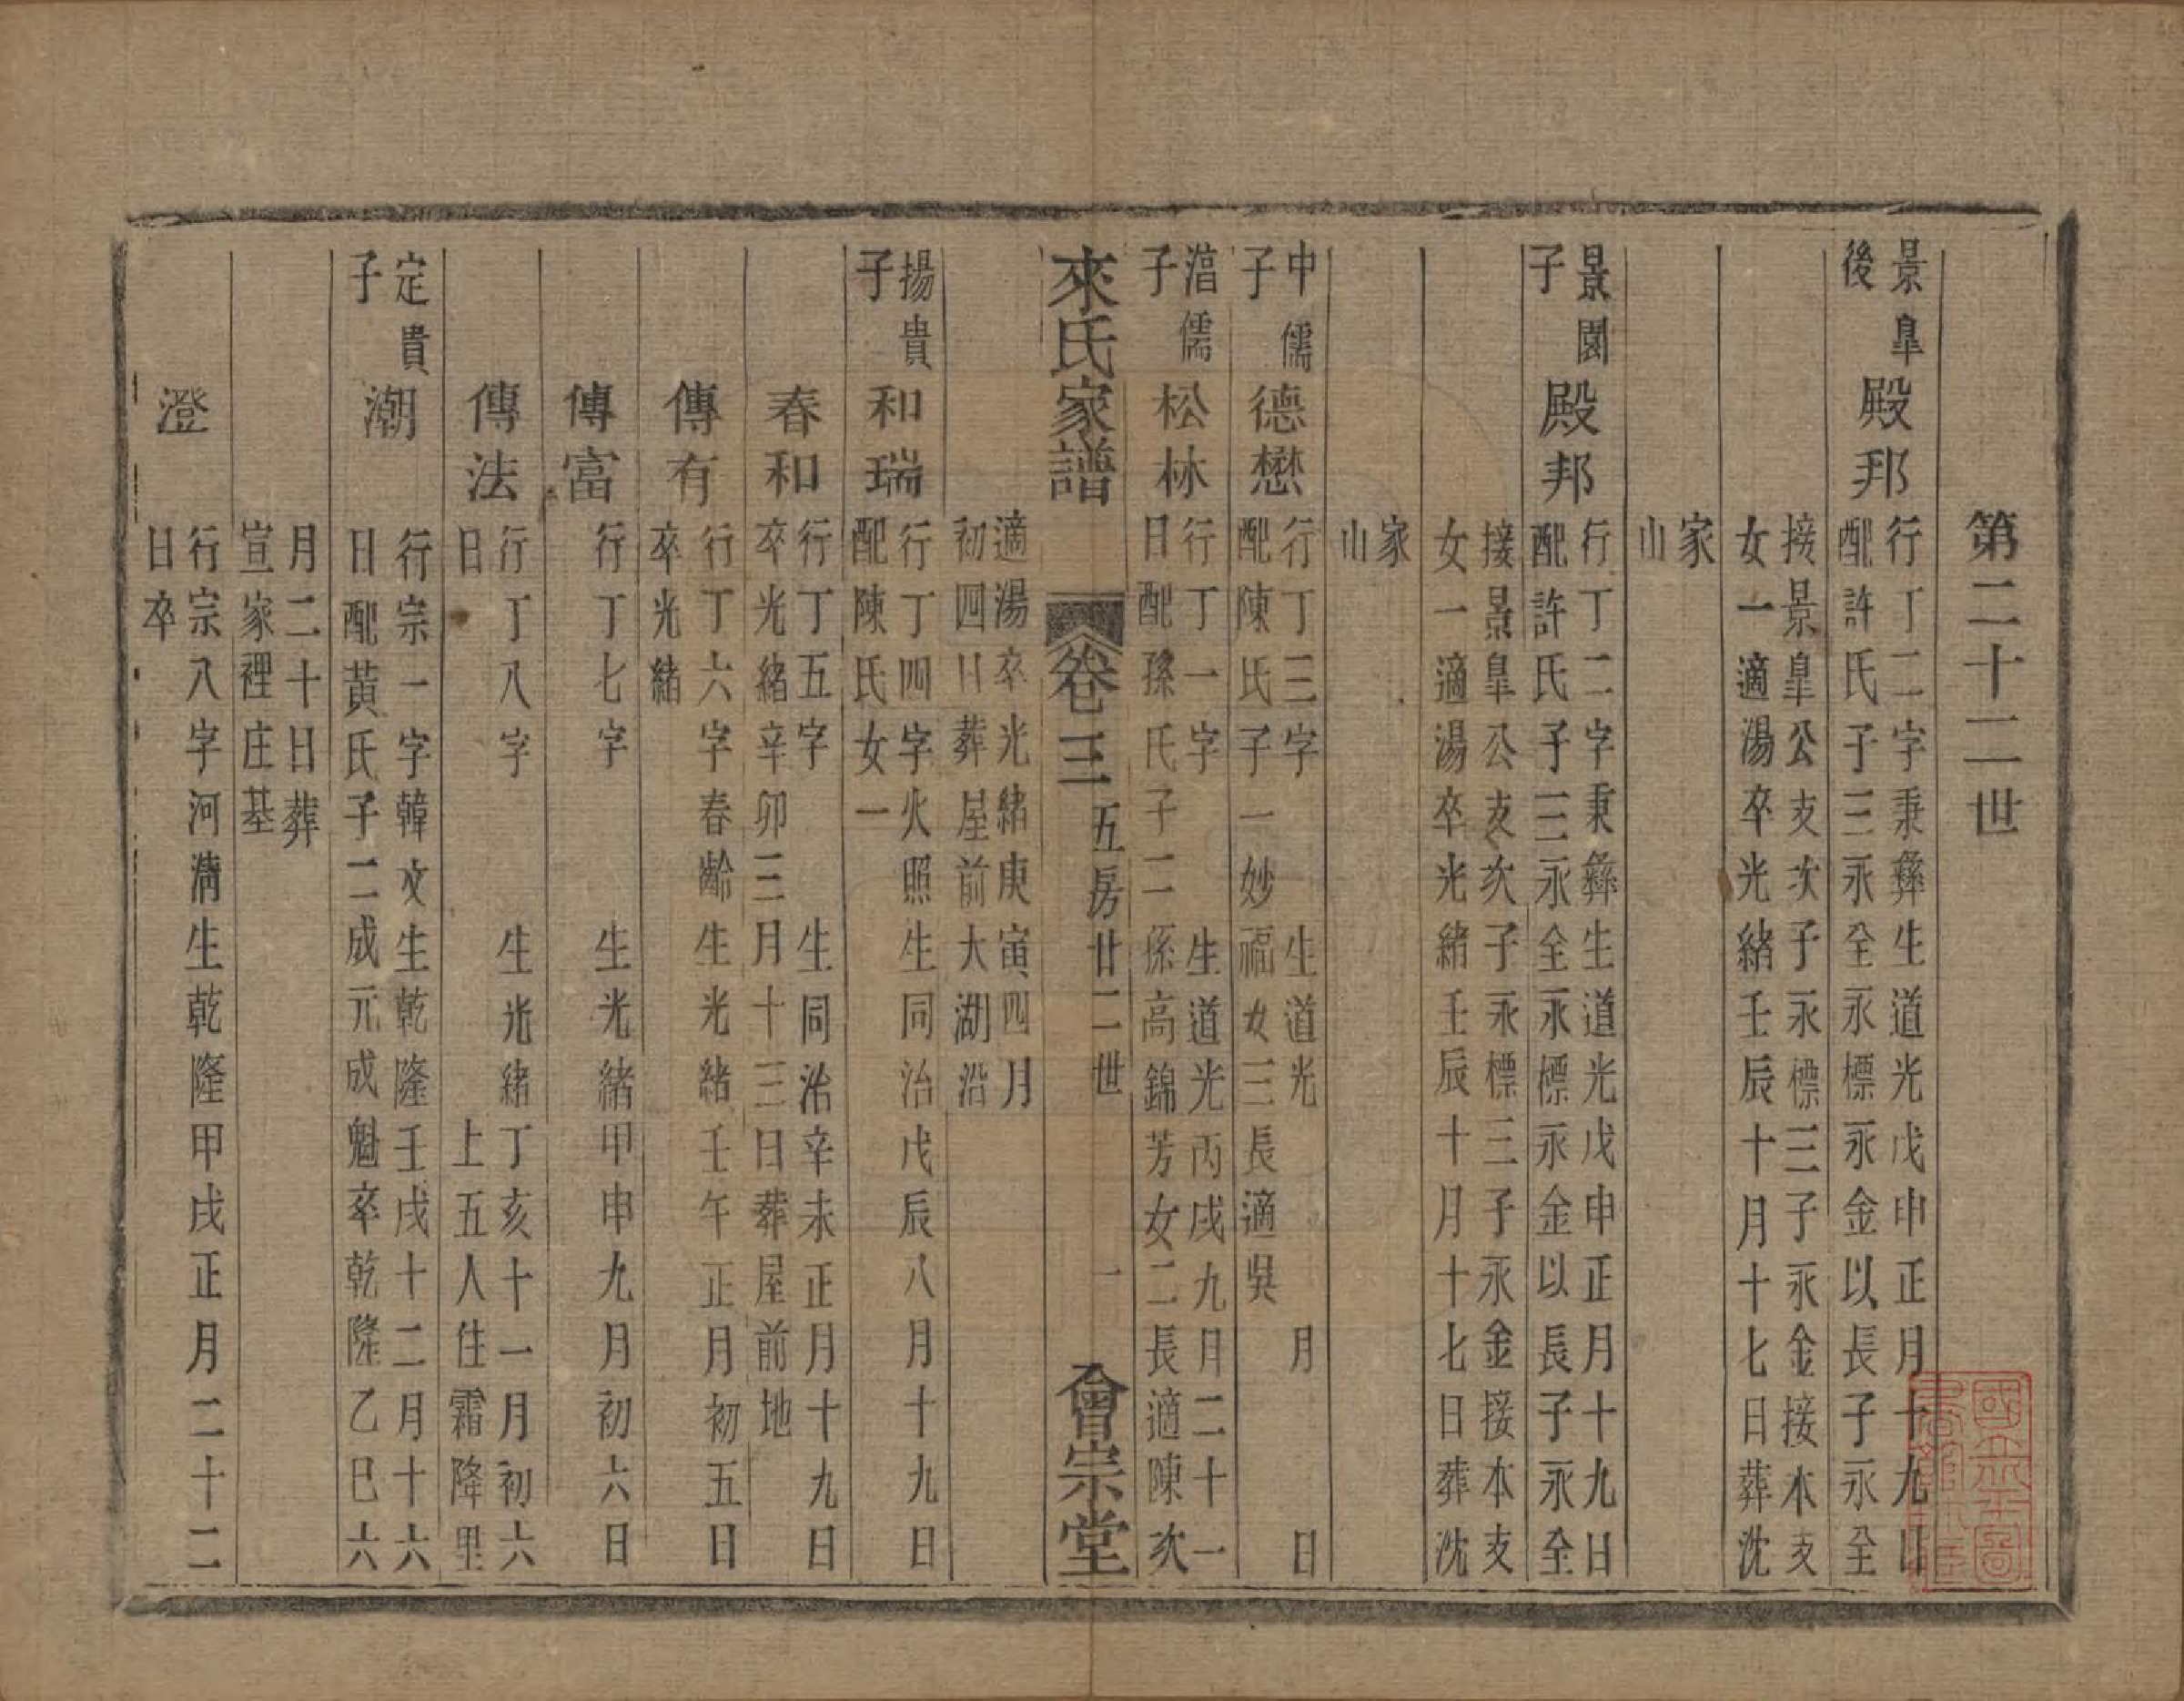 第二十二世
景臯後
殿邦
行丁二字秉彝生道光戊申正月十九日
配許氏子三永全永標永金以長子永全
接景臯公支次子永標三子永金接本支
女一適湯卒光緒壬辰十月十七日葬沈
家山
景園子
殿邦
行丁二字秉彝生道光戊申正月十九日
配許氏子三永全永標永金以長子永全
接景臯公支次子永標三子永金接本支
女一適湯卒光緒壬辰十月十七日葬沈
家山
中儒子
德懋
行丁三字 生道光 月 日
配陳氏子一妙福女三長適吳
湆儒子
松林
行丁一字 生道光丙戌九月二十一
日配孫氏子二孫高錦芳女二長適陳次
來氏家譜
卷三
五房廿二世
一
會宗堂
適湯卒光緒庚寅四月
初四日葬屋前大湖沿
揚貴子
和瑞
行丁四字火照生同治戊辰八月十九日
配陳氏女一
春和
行丁五字 生同治辛未正月十九日
卒光緒辛卯三月十三日葬屋前地
傳有
行丁六字春齡生光緒壬午正月初五日
卒光緒
傳富
行丁七字 生光緒甲申九月初六日
傳法
行丁八字 生光緒丁亥十一月初六
日 上五人住霜降里
定貴子
潮
行宗一字韓文生乾隆壬戌十二月十六
日配黃氏子二成元成魁卒乾隆乙巳六
月二十日葬
宣家裡庄基
澄
行宗八字河淸生乾隆甲戌正月二十二
日卒